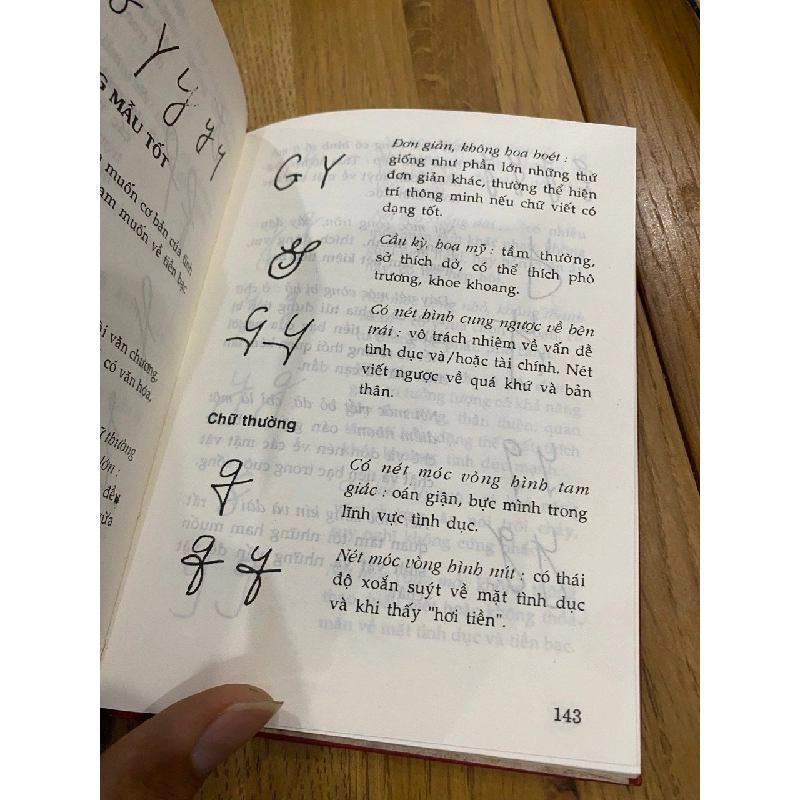 Y y y y
G MẪU TỐT
muốn cơ bản của tình
am muốn về tiền bạc
ài văn chương,
có văn hóa,
lớn :
G Y
Đơn giản, không hoa hoét :
giống như phần lớn những thứ
đơn giản khác, thường thể hiện
trí thông minh nếu chữ viết có
dạng tốt.
Cầu kỳ, hoa mỹ : tầm thường,
sở thích dở, có thể thích phô
trương, khoe khoang.
G Y
Có nét hình cung ngược về bên
trái : vô trách nhiệm về vấn đề
tình dục và/hoặc tài chính. Nét
viết ngược về quá khứ và bản
thân.
Chữ thường
g
Có nét móc vòng hình tam
giác : oán giận, bực mình trong
lĩnh vực tình dục.
g y
Nét móc vòng hình nút : có thái
độ xoắn suýt về mặt tình dục
và khi thấy "hơi tiền".
143